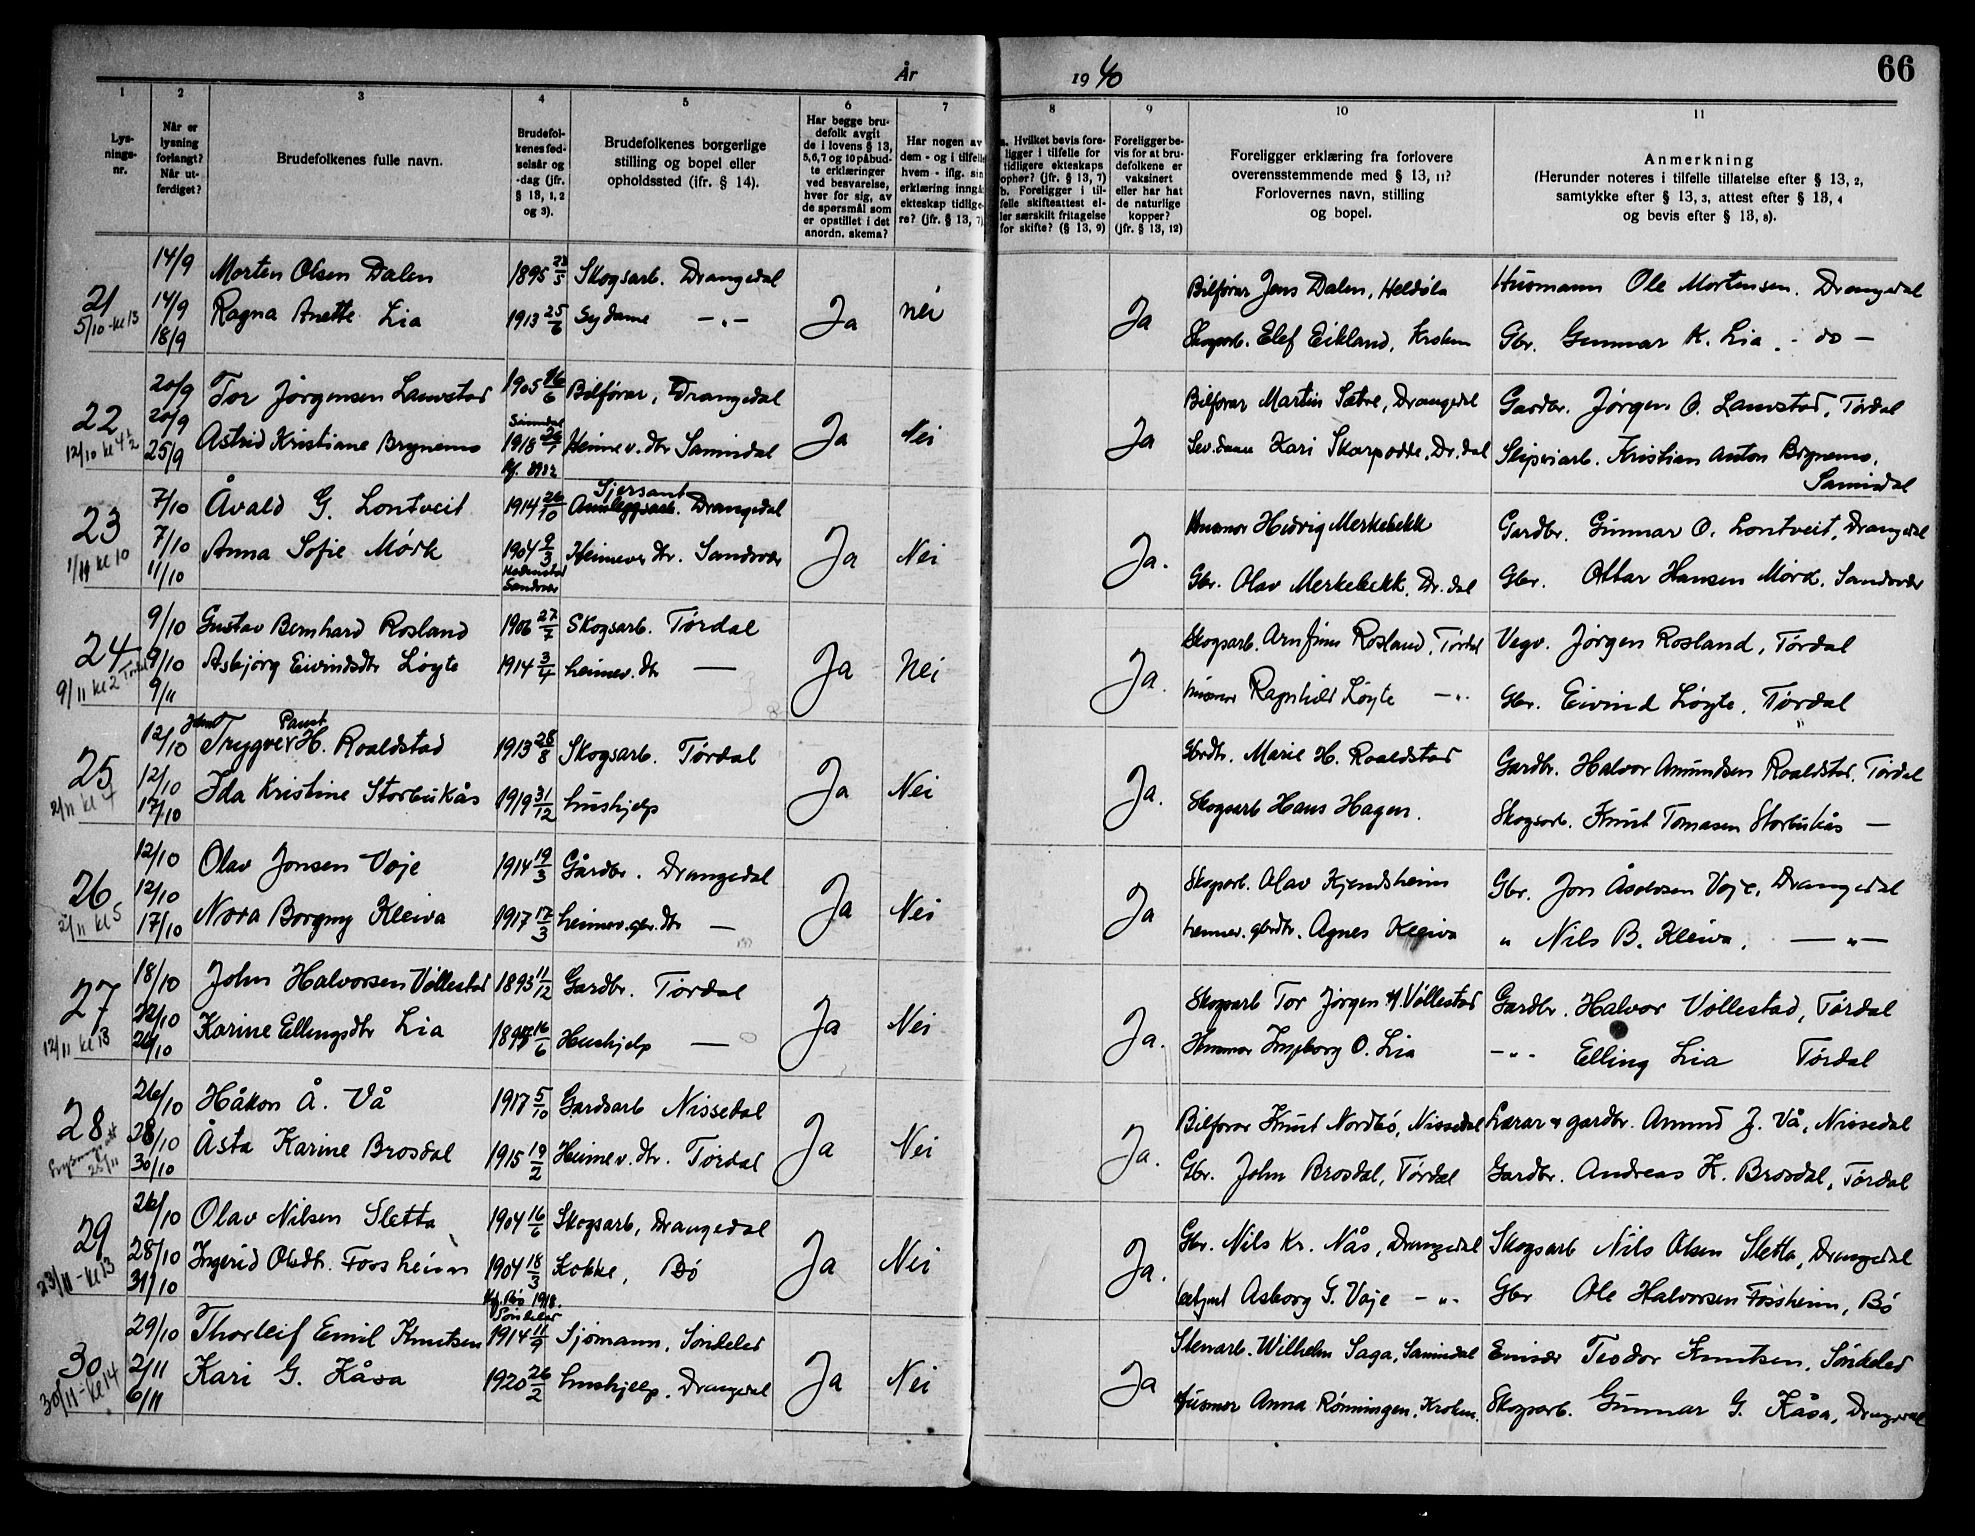 År 1940 66
1 2 3 4 5 6 7 8 9 10 11
Lys-nings-nr.
Når er lysning forlangt? Når ut-ferdiget?
Brudefolkenes fulle navn.
Brudefol-kenes fød-selsår og -dag (jfr. § 13, 1, 2 og 3).
Brudefolkenes borgerlige stilling og bopel eller opholdssted (ifr. § 14).
Har begge bru-defolk avgit de i lovens § 13, 5,6,7 og 10 påbud-te erklæringer ved besvarelse, hver for sig, av de spørsmål som er opstillet i det anordn. skema?
Har nogen av dem - og i tilfelle hvem - iflg. sin erklæring inngått ekteskap tidlige-re? (jfr. § 13, 7)
a. Hvilket bevis fore-ligger i tilfelle for tidligere ekteskaps opher? (jfr. § 13, 7) b. Foreligger i til-felle skifteattest el-ler særskilt fritagelse for skifte? (§ 13, 9)
Foreligger be-vis for at bru-defolkene er vaksinert eller har hat de naturlige kopper? (jfr. § 13, 12)
Foreligger erklæring fra forlovere overensstemmende med § 13, 11? Forlovernes navn, stilling og bopel.
Anmerkning (Herunder noteres i tilfelle tillatelse efter § 13, 2, samtykke efter § 13, 3, attest efter § 13, 4 og bevis efter § 13, 8).
14/9 Morten Olsen Dalen 1895 23/5 Skogsarb. Drangedal Bilførar Jens Dalen, Heldøla Husmann Ole Mortensen. Drangedal
21 14/9 Ragna Anette Lia 1913 25/6 Sydame -"- Ja nei Ja Skogsarb. Elef Eikland, Kroken Gbr. Gunnar K. Lia. - do -
5/10 - kl 13 18/9
20/9 Tor Jørgensen Lauvstad 1905 16/6 Bilførar, Drangedal Bilførar Martin Sætre, Drangedal Gardbr. Jørgen O. Lauvstad, Tørdal
22 20/9 Astrid Kristiane Brynemo Sannidal 1918 26/7 Heimev. dtr Sannidal Ja Nei Ja Kari Skarpodde, Dr.dal Slipeiarb. Kristian Anton Brynemo, Sannidal
12/10 kl 4½ 25/9
7/10 Åvald G. Lontveit 1914 26/10 Sjersant Anleggsarb. Drangedal Husmor Hedvig Merkebekk Gardbr. Gunnar O. Lontveit, Drangedal
23 7/10 Anna Sofie Mörk 1904 9/3 Sandsvær Heimev dtr. Sandsvær Ja Nei Ja. Gbr. Olav Merkebekk, Dr.dal Gbr. Ottar Hansen Mörk. Sandsvær
1/11 kl 10 11/10
9/10 Gustav Bernhard Rosland 1906 27/7 Skogsarb. Tørdal Skogsarb. Arnfinn Rosland, Tørdal Vegv. Jørgen Rosland, Tørdal
24 9/10 Asbjörg Eivindsdtr Løyte 1914 3/4 heimev. dtr — Ja Nei Ja. husmor Ragnhild Løyte -"- Gbr. Eivind Løyte. Tørdal
9/11 kl 2 Tørdal 9/11
12/10 Trygve H. Roaldstad 1913 28/8 Skogsarb. Tørdal Gbrdtr. Marie H. Roaldstad Gardbr. Halvor Amundsen Roaldstad, Tørdal
25 12/10 Ida Kristine Storbukås 1919 31/12 hushjelp Ja Nei Ja. Skogsarb Hans Hagen. Skogsarb. Knut Tomasen Storbukås —
2/11 kl 4 17/10
12/10 Olav Jonsen Voje 1914 19/3 Gårdbr. Drangedal Skogsarb. Olav Kjendsheim Gbr. Jon Åsolvsen Voje, Drangedal
26 12/10 Nora Borgny Kleiva 1917 17/3 heimev. gbr. dtr — Ja Nei Ja heimev. gbrdtr. Agnes Kleiva " Nils B. Kleiva. —"—
2/11 kl 5 17/10
18/10 John Halvorsen Vøllestad 1893 11/12 Gardbr. Tørdal Skogsarb Tor Jørgen H. Vøllestad Gardbr. Halvor Vøllestad, Tørdal
27 22/10 Karine Ellingsdtr Lia 16/6 Hushjelp — Ja Nei Ja. Husmor Ingeborg O. Lia -"- Elling Lia Tørdal
12/11 kl 13 26/10
26/10 Håkon Å. Vå 1917 5/10 Gardsarb Nissedal Bilførar Knut Nordbø, Nissedal Lærar & gardbr. Amund J. Vå, Nissedal
28 28/10 Åsta Karine Brosdal 1915 19/2 Heimev. dtr. Tørdal Ja Nei Ja. Gbr. John Brosdal, Tørdal Gardbr. Andreas K. Brosdal, Tørdal
25/11 30/10
26/10 Olav Nilsen Sletta 1904 16/6 Skogsarb, Drangedal Gbr. Nils Kr. Nås, Drangedal Skogsarb Nils Olsen Sletta, Drangedal
29 28/10 Ingerid Olsdtr. Fossheim 1904 18/3 Kokke, Bö Ja Nei Ja. Asborg G. Voje -"- Gbr Ole Halvorsen Fossheim, Bö
23/11 - kl 13 31/10 Kf. Bö 1918.
29/10 Thorleif Emil Knutsen Söndeled 1914 11/9 Sjömann, Söndeled Stenarb. Wilhelm Saga, Sannidal Teodor Knutsen, Söndeled
30 2/11 Kari G. Kåsa 1920 26/2 hushjelp, Drangedal Ja Nei Ja Husmor Anna Rønningen, Kroken. Skogsarb. Gunnar G. Kåsa, Drangedal
30/11 - kl 14 6/11